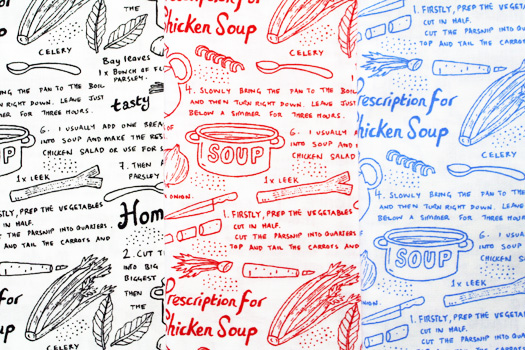 THE
CELERY
Bay leaves
1 x BUNCH OF
PARSLEY
BRING THE PAN TO THE BOIL
RIGHT DOWN. LEAVE JUST
FOR THREE HOURS.
tasty
6. I USUALLY ADD ONE
INTO SOUP AND MAKE THE
CHICKEN SALAD OR USE FOR
SOUP
7. THEN
PARSLEY
1x LEEK
FIRSTLY, PREP THE VEGETABLES
IN HALF.
THE PARSNIP INTO QUARTERS.
AND TAIL THE CARROTS AND
2. CUT
INTO BIG
BIGGEST
THEN
THE
CELERY
Chicken Soup
CELERY
4. SLOWLY BRING THE PAN TO THE BOIL
AND THEN TURN RIGHT DOWN. LEAVE JUST
BELOW A SIMMER FOR THREE HOURS.
6. I USUALLY
INTO SOUP AND
CHICKEN SALAD
SOUP
1x LEEK
ONION.
1. FIRSTLY, PREP THE VEGETABLES
CUT IN HALF.
CUT THE PARSNIP INTO QUARTERS.
TOP AND TAIL THE CARROTS AND
Prescription for
Chicken Soup
1. FIRSTLY, PREP THE
CUT IN HALF.
CUT THE PARSNIP INTO
TOP AND TAIL THE CARROTS
Prescription for
Chicken Soup
CELERY
4. SLOWLY BRING THE PAN TO THE
AND THEN TURN RIGHT DOWN. LEAVE
BELOW A SIMMER FOR THREE HOURS
6. I
INTO SOUP
CHICKEN
SOUP
1x LEEK
1. FIRSTLY, PREP THE
CUT IN HALF.
CUT THE PARSNIP